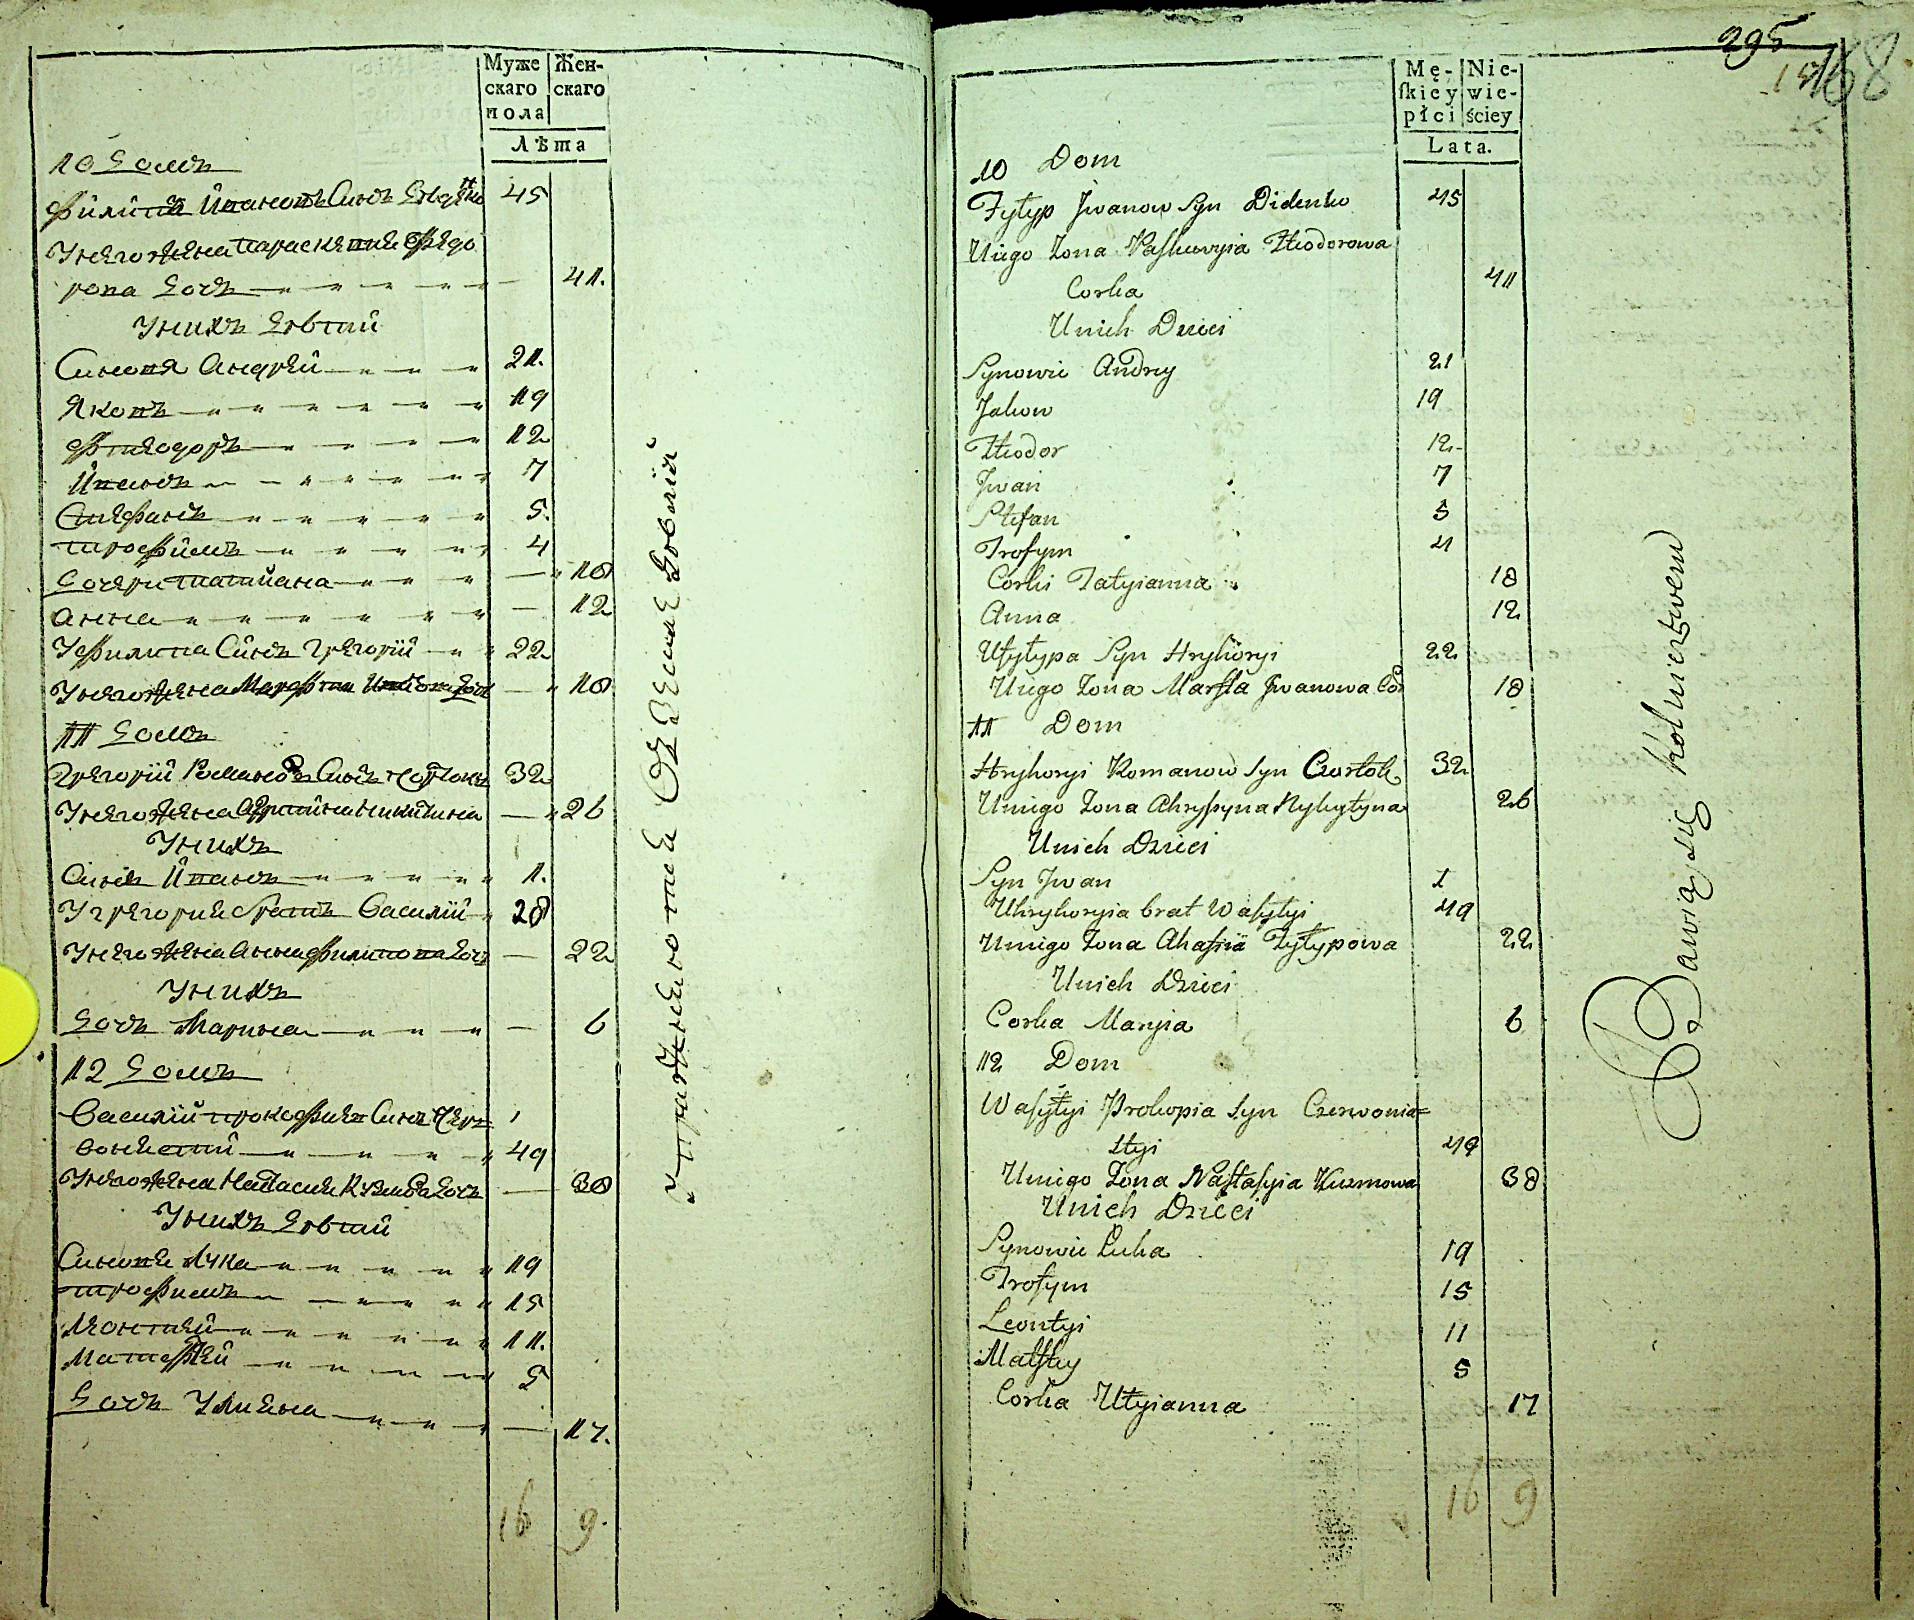 Муже
скаго
пола
Жен-
скаго
Лѣта
10 Домъ
Филипъ Ивановъ Синъ Дѣдѣнко 45
Унего жена Параскевия Федо
рова Дочъ 41.
Унихъ Дѣти
Синовя Андрей 21.
Яковъ 19
Фтеодоръ 12
Иванъ 7
Стефанъ 5.
Трофимъ 4
Дочери Татиана 18
Анна 12
У Филипа Синъ Григорий 22
Унего жена Марфта Иванова Доч 18
11 Домъ
Григорий Романовъ Синъ Чортокъ 32
Унего жена Христина Никитина 26
Унихъ
Синъ Иванъ 1.
У Григория братъ Василий 28
Унего жена Анна Филипова Доч 22
Унихъ
Дочъ Марина 6
12 Домъ
Василий Прокофиев Синъ Чер=
вонѣстий 49
Унего жена Настасия Кузмова Дочъ 38
Унихъ Дѣти
Синовя Лука 19
Трофимъ 15
Леонтий 11.
Матфей 5
Дочъ Улияна 17.
16 9.
295
168
Mę-
skiey
płci
Nie-
wie-
ściey
Lata.
10 Dom
Fyłyp Jwanow Syn Didenko 45
Unigo Zona Paskewyia Fteodorowa
Corka 41
Unich Dzieci
Synowie Andrey 21
Jakow 19
Fteodor 12
Jwan 7
Stefan 5
Trofym 4
Corki Tatyianna 18
Anna 12
Ufyłypa Syn Hryhöryi 22
Unigo Zona Marfta Jwanowa Cor 18
11 Dom
Hryhoryi Romanow Syn Czortok 32
Unnigo Zona Chrystyna Nykytyna 26
Unich Dzieci
Syn Jwan 1
Uhryhoryia brat Wasylyi 49
Unnigo Zona Ahafiia Fyłypowa 22
Unich Dzieci
Corka Maryia 6
12 Dom
Wasyłyi Prokopia Syn Czerwonia=
styi 49
Unnigo Zona Nastasyia Kuzmowa 38
Unich Dzieci
Synowie Łuka 19
Trofym 15
Leontyi 11
Matftey 5
Corka Ulyianna 17
16 9
Bawią się Rolnictwem